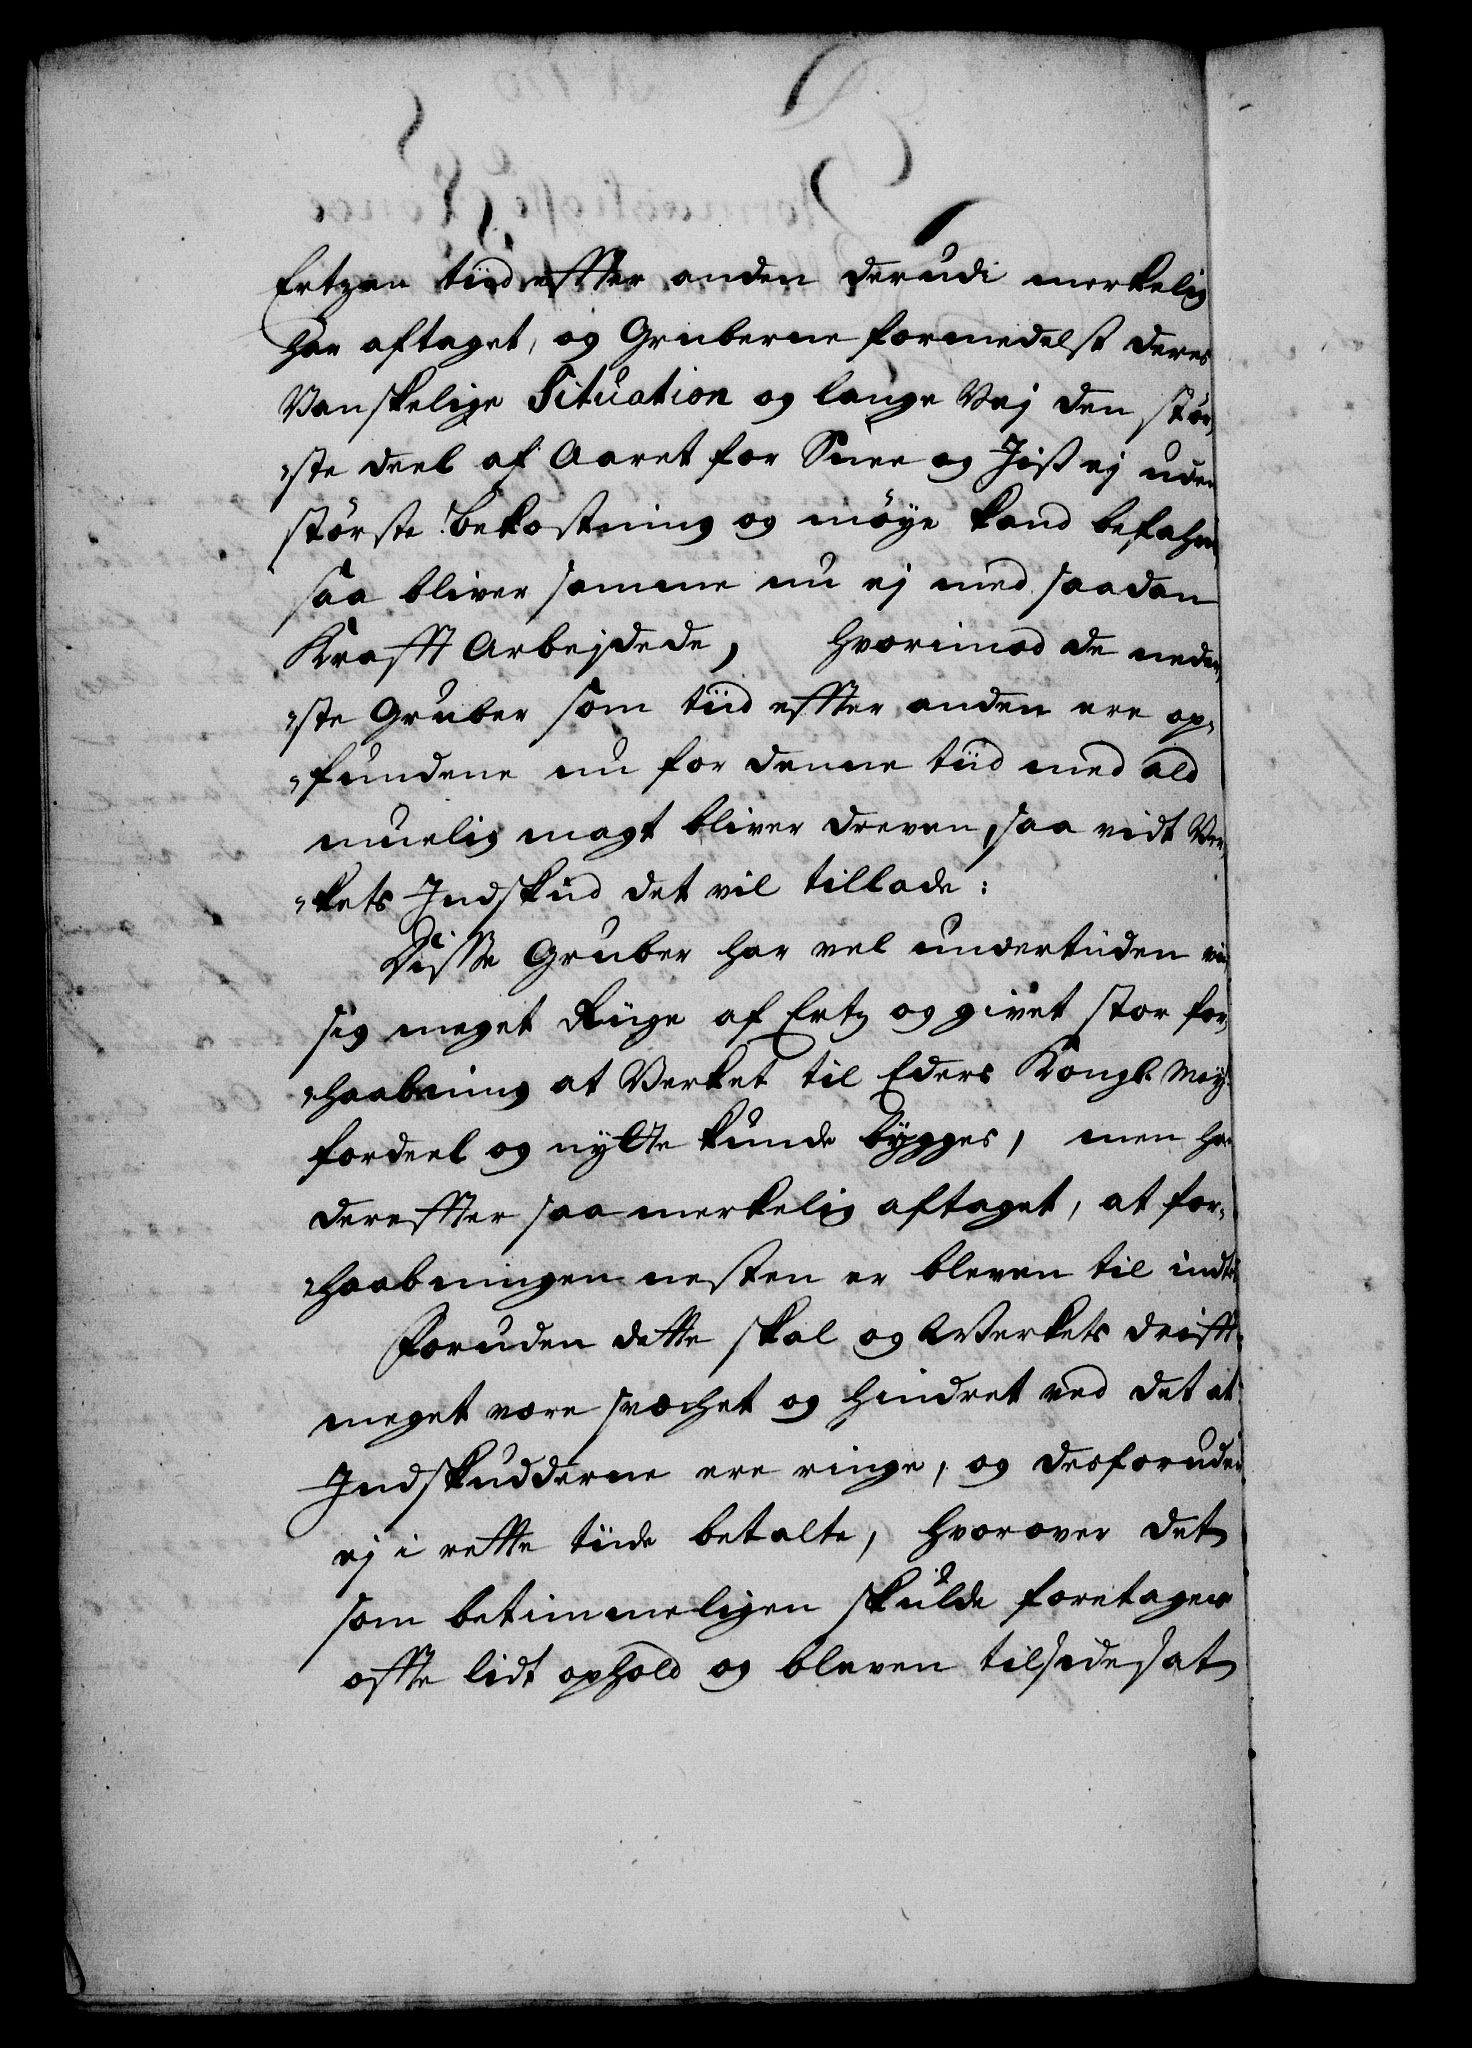 Ertzen tiid effter anden derudi merkelig
har aftaget, og Gruberne formedelst deres
Vanskelige Situation og lange Vej den stør,
"ste deel af Aaret for Snee og Jiss ej uden
største bekostning og møye kand befahres
saa bliver samme nu ej med saadan
Krafft Arbejdede, hvorimod de neder,
"ste Gruber som tiid effter anden ere op,
"fundene nu for denne tiid med ald
muelig magt bliver dreven, saa vidt Ver,
"kets Indskud det vil tillade:
Disse Gruber har vel undertiiden
sig meget Riige af Ertz og givet stor for
"haabning at Verket til Eders Kongl. May:
fordeel og nytte kunde bygges, men har
dereffter saa merkelig aftaget, at for,
"haabningen nesten er bleven til indtet
Foruden dette skal og Verkets drifft
meget være svæchet og hindret ved det at
Indskudderne ere ringe, og desforuden
ej i rette tiide betalte, hvorover det
som betimmeligen skulde foretages
offte lidt ophold og bleven tilsidesat